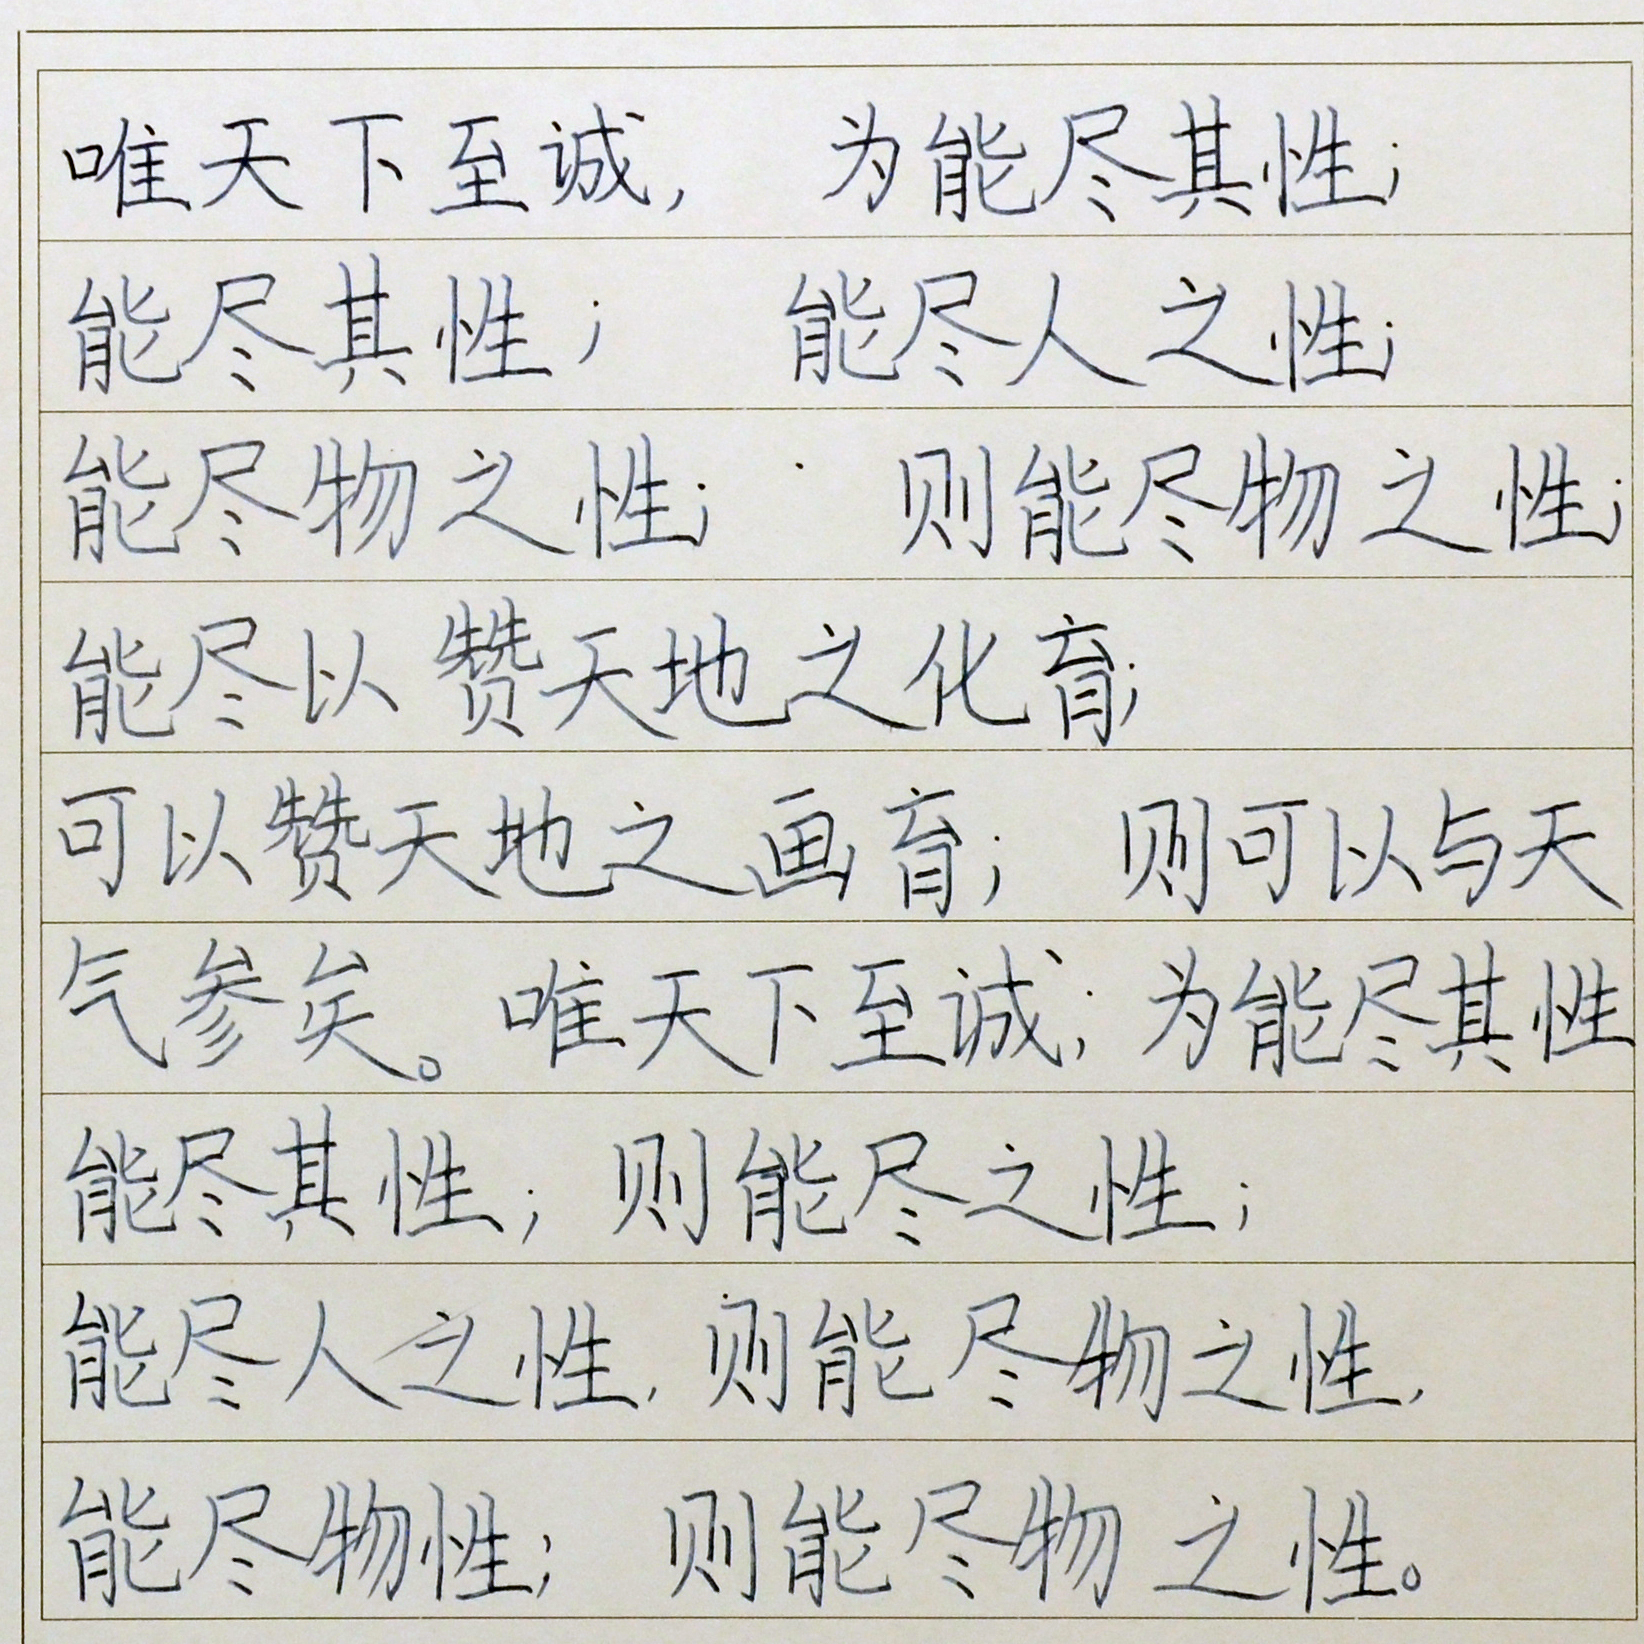 唯天下至诚，为能尽其性；
能尽其性；能尽人之性；
能尽物之性；则能尽物之性；
能尽以赞天地之化育；
可以赞天地之画育；则可以与天
气参矣。唯天下至诚；为能尽其性
能尽其性；则能尽之性；
能尽人之性，则能尽物之性，
能尽物性；则能尽物之性。